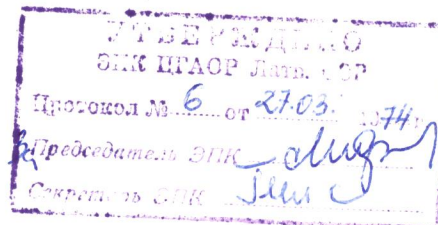 УТВЕРЖДЕНО
ЭПК ЦГАОР Латв. ССР
Протокол № 6 от 27.03. 1974 г.
Председатель ЭПК
Секретарь ЭПК